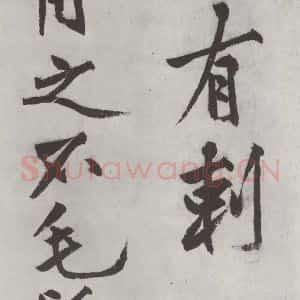 有刺
之不毛
Shufawang.CN